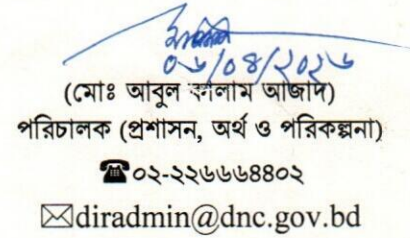 ০৬/০৪/২০২৬
(মোঃ আবুল কালাম আজাদ)
পরিচালক (প্রশাসন, অর্থ ও পরিকল্পনা)
☎০২-২২৬৬৬৪৪০২
✉diradmin@dnc.gov.bd